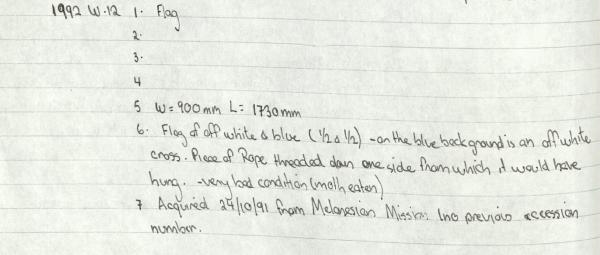 1992 W.12 1. Flag
2.
3.
4
5 W = 900mm L = 1730mm
6. Flag of off white & blue (1/2 & 1/2) - on the blue background is an off white
cross. Piece of Rope threaded down one side from which it would have
hung. - very bad condition (moth eaten)
7 Acquired 24/10/91 from Melanesian Mission (no previous accession
number.